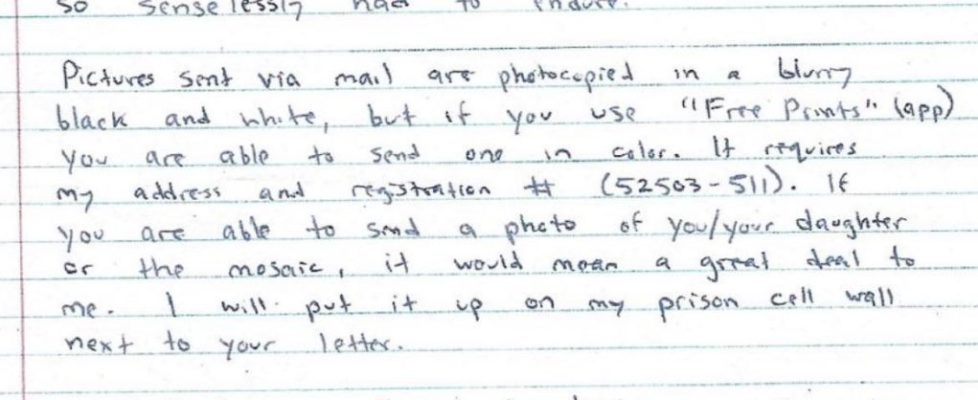 so senselessly had to endure.
Pictures sent via mail are photocopied in a blurry
black and white, but if you use "Free Prints" (app)
you are able to send one in color. It requires
my address and registration # (52503-511). If
you are able to send a photo of you/your daughter
or the mosaic, it would mean a great deal to
me. I will put it up on my prison cell wall
next to your letter.